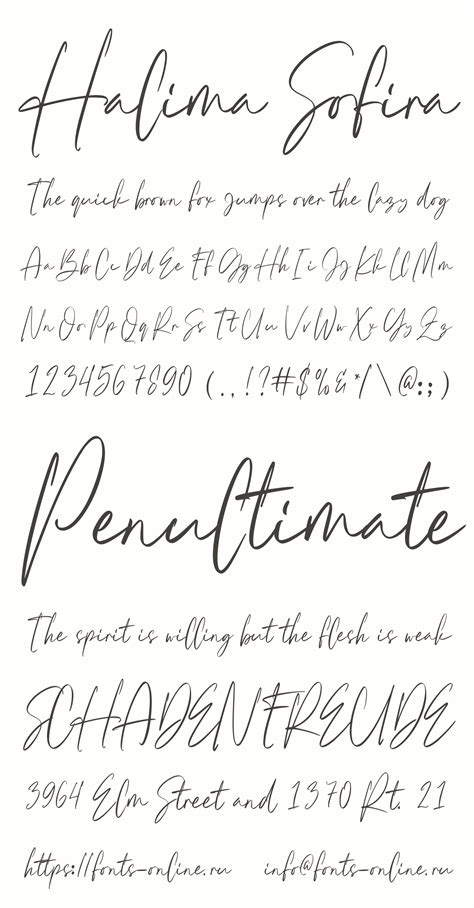 Halima Sofira
The quick brown fox jumps over the lazy dog
Aa Bb Cc Dd Ee Ff Gg Hh Ii Jj Kk Ll Mm
Nn Oo Pp Qq Rr Ss Tt Uu Vv Ww Xx Yy Zz
1234567890 (.,!?#$%&*/\@:;)
Penultimate
The spirit is willing but the flesh is weak
SCHADENFREUDE
3964 Elm Street and 1370 Rt. 21
https://fonts-online.ru info@fonts-online.ru